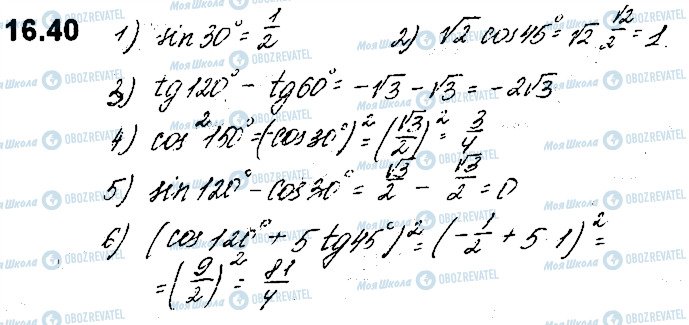 16.40 1) sin 30° = 1/2 2) √2 cos 45° = √2 · √2/2 = 1.
3) tg 120° - tg 60° = -√3 - √3 = -2√3
4) cos² 150° = (-cos 30°)² = (√3/2)² = 3/4
5) sin 120° - cos 30° = √3/2 - √3/2 = 0
6) (cos 120° + 5 tg 45°)² = (-1/2 + 5 · 1)² =
= (9/2)² = 81/4